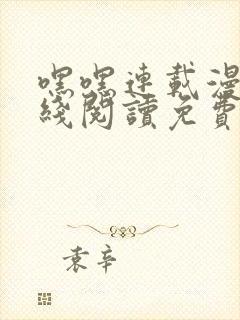 嘿嘿連載漫
綫閱讀免費
袁辛